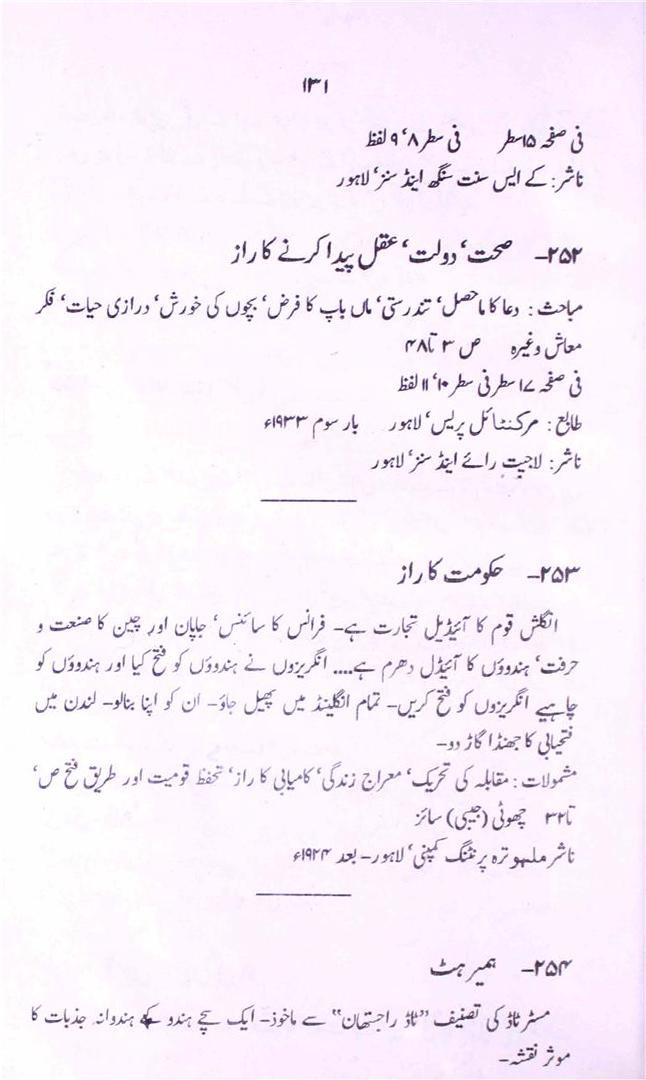 ۱۳۱
فی صفحہ ۱۵ سطر فی سطر ۸، ۹ لفظ
ناشر: کے ایس سنت سنگھ اینڈ سنز، لاہور
۲۵۲- صحت، دولت، عقل پیدا کرنے کا راز
مباحث: دعا کا ماحصل، تندرستی، ماں باپ کا فرض، بچوں کی خورش، درازی حیات، فکر
معاش وغیرہ ص ۳ تا ۴۸
فی صفحہ ۱۷ سطر فی سطر ۱۰، ۱۱ لفظ
طابع: مرکنٹائل پریس، لاہور بار سوم ۱۹۳۳ء
ناشر: لاجپت رائے اینڈ سنز، لاہور
۲۵۳- حکومت کا راز
انگلش قوم کا آئیڈیل تجارت ہے- فرانس کا سائنس، جاپان اور چین کا صنعت و
حرفت، ہندوؤں کا آئیڈل دھرم ہے.... انگریزوں نے ہندوؤں کو فتح کیا اور ہندوؤں کو
چاہیے انگریزوں کو فتح کریں- تمام انگلینڈ میں پھیل جاؤ- ان کو اپنا بنالو- لندن میں
فتحیابی کا جھنڈا گاڑ دو-
مشمولات: مقابلہ کی تحریک، معراج زندگی، کامیابی کا راز، تحفظ قومیت اور طریق فتح ص،
تا ۳۲ چھوٹی (جیبی) سائز
ناشر ملہوترہ پرنٹنگ کمپنی، لاہور- بعد ۱۹۲۴ء
۲۵۴- ہمیر ہٹ
مسٹر ٹاڈ کی تصنیف "ٹاڈ راجستھان" سے ماخوذ- ایک سچے ہندو کے ہندوانہ جذبات کا
موثر نقشہ-